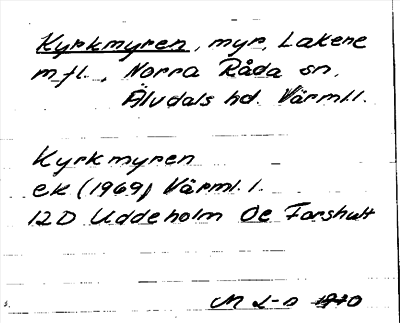 Kyrkmyren, myr, Lakene
m fl., Norra Råda sn,
Älvdals hd. Värml.l.
Kyrkmyren
ek (1969) Värml. l.
12D Uddeholm Oe Forshult
M L-D 1970